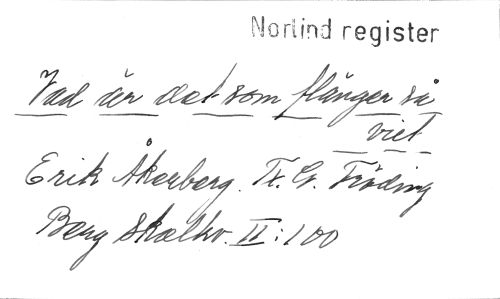 Norlind register
Vad är det som flänger så
vitt
Erik Åkerberg. T. G. Fröding
Berg Skolkv. II: 100